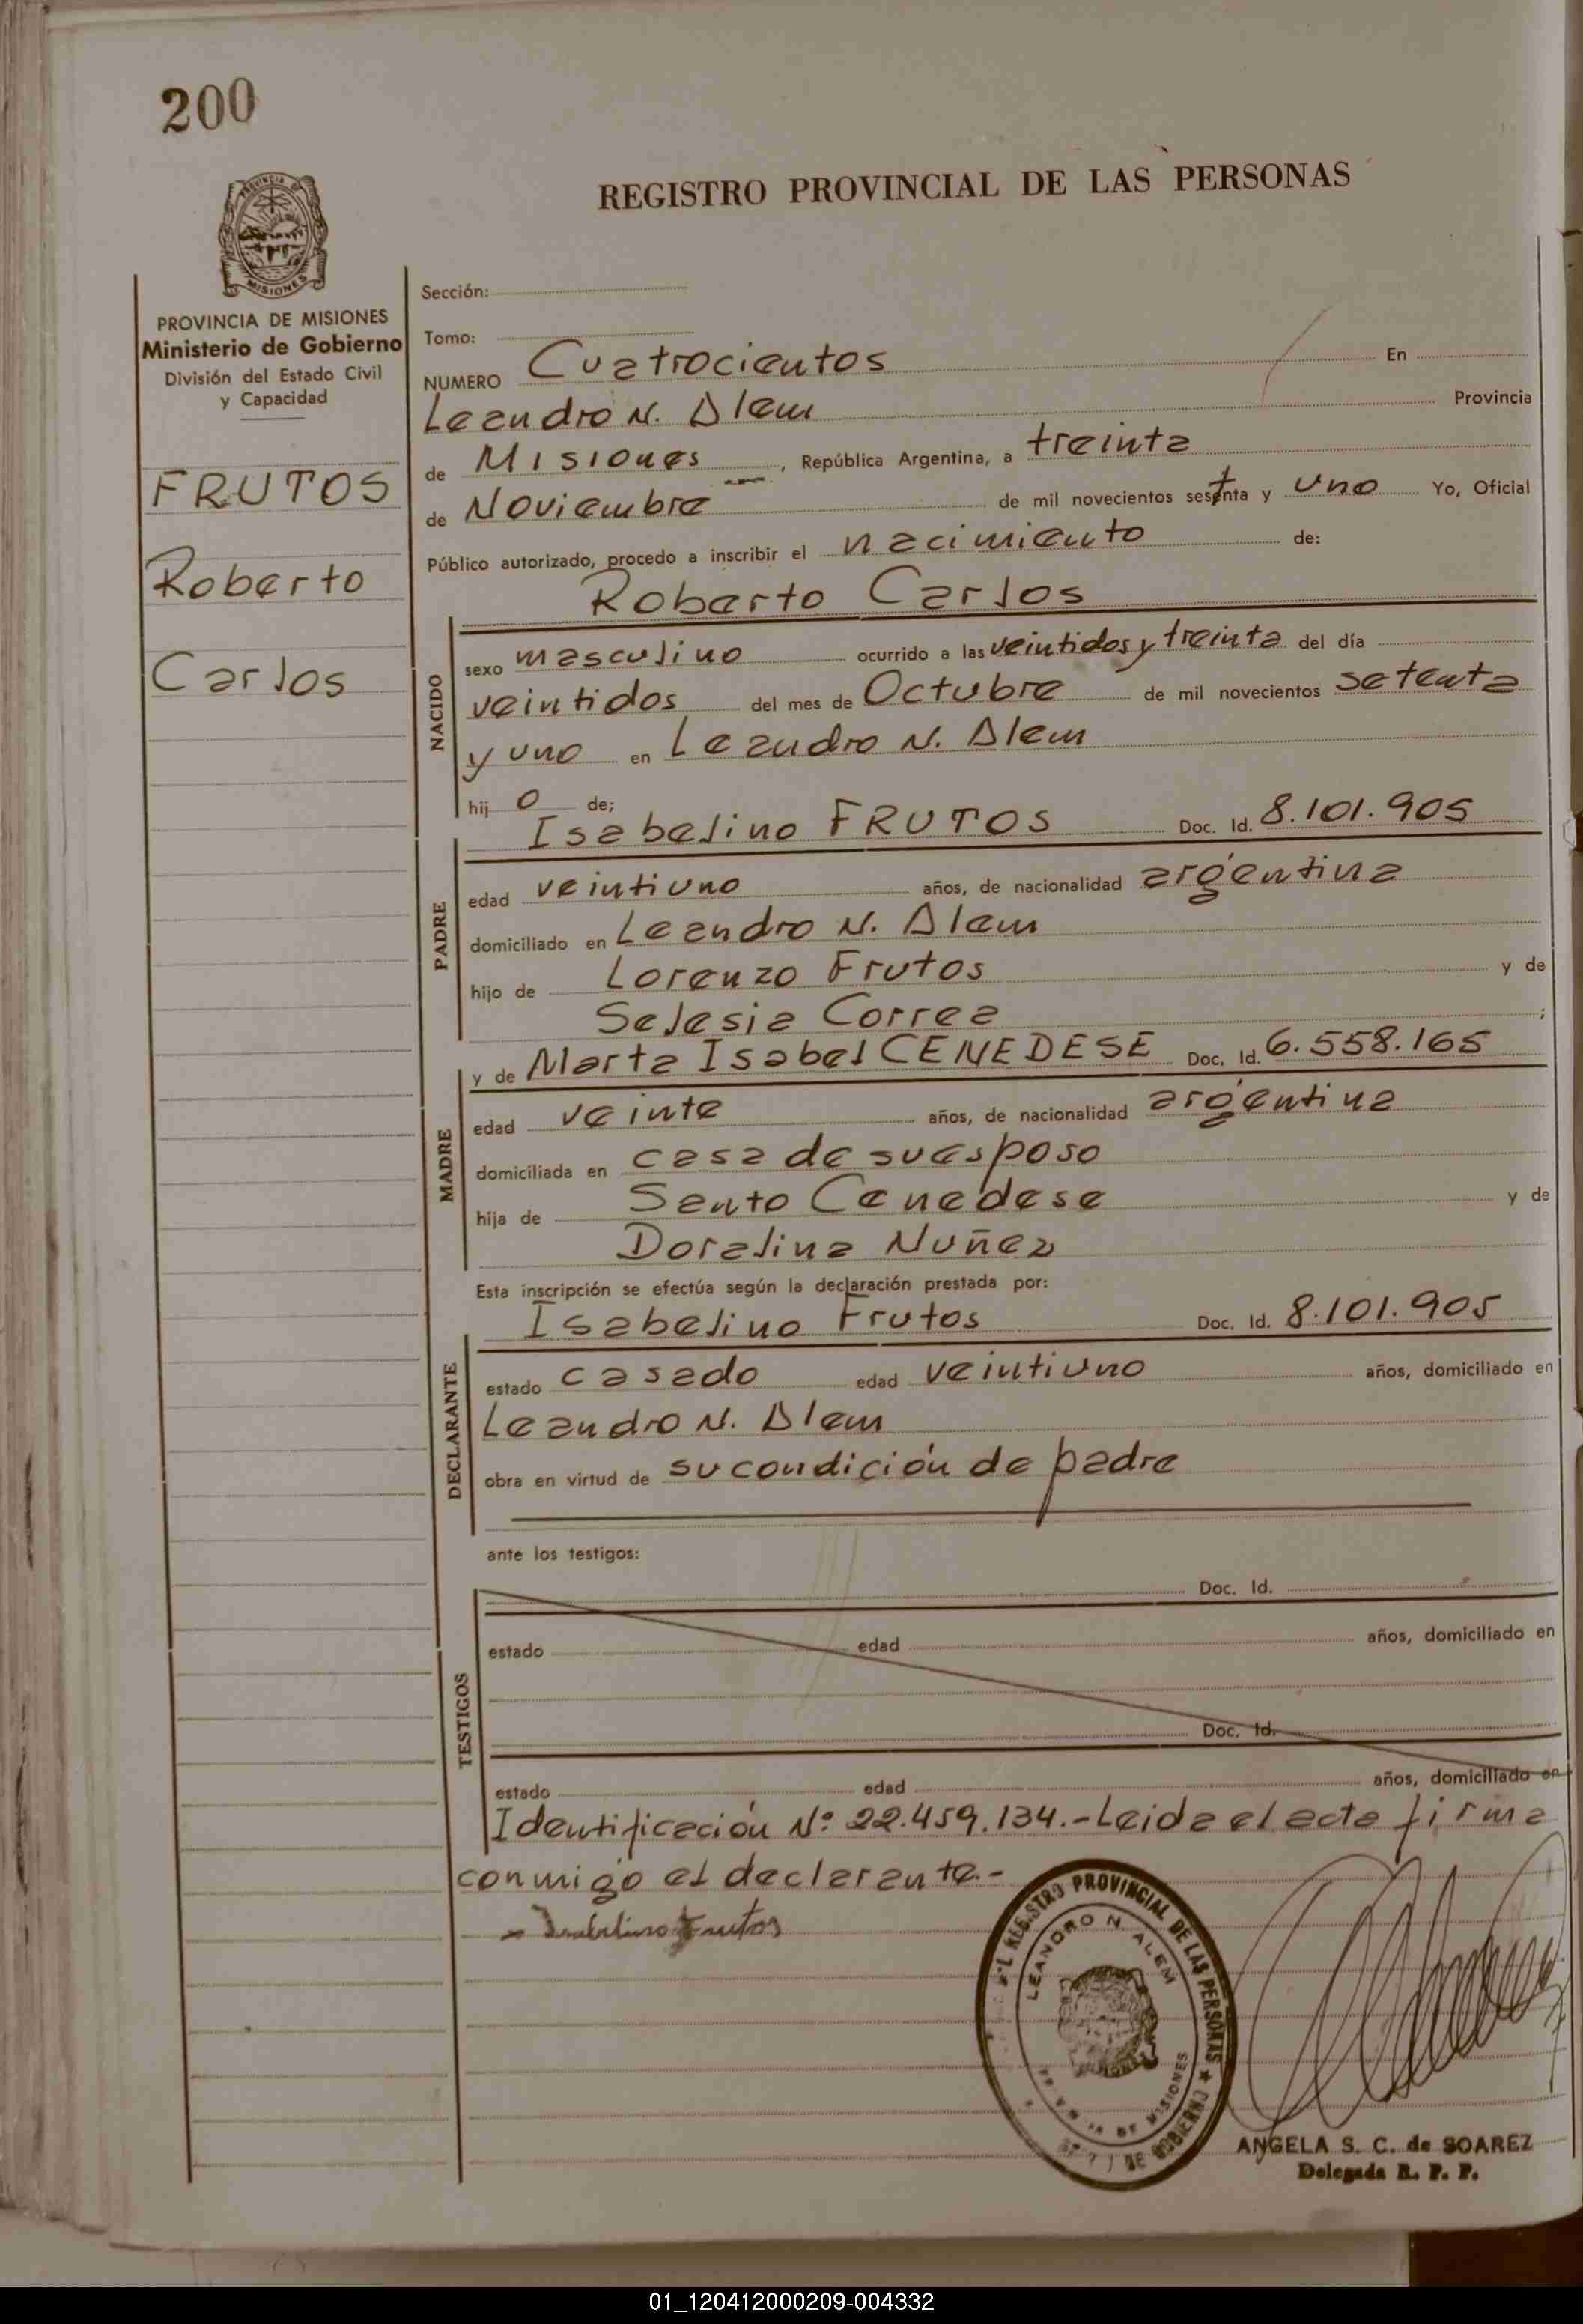 200
REGISTRO PROVINCIAL DE LAS PERSONAS
PROVINCIA DE MISIONES
MISIONES
PROVINCIA DE MISIONES
Ministerio de Gobierno
División del Estado Civil
y Capacidad
FRUTOS
Roberto
Carlos
Sección:
Tomo:
NUMERO Cuatrocientos En
Leandro N. Alem Provincia
de Misiones, República Argentina, a treinta
de Noviembre de mil novecientos setenta y uno Yo, Oficial
Público autorizado, procedo a inscribir el nacimiento de:
Roberto Carlos
NACIDO
sexo masculino ocurrido a las veintidos y treinta del día
veintidos del mes de Octubre de mil novecientos setenta
y uno en Leandro N. Alem
hij o de;
Isabelino FRUTOS Doc. Id. 8.101.905
PADRE
edad veintiuno años, de nacionalidad argentina
domiciliado en Leandro N. Alem
hijo de Lorenzo Frutos y de
Selesia Correa ;
y de Marta Isabel CENEDESE Doc. Id. 6.558.165
MADRE
edad veinte años, de nacionalidad argentina
domiciliada en casa de su esposo
hija de Santo Cenedese y de
Doralina Nuñez
Esta inscripción se efectúa según la declaración prestada por:
Isabelino Frutos Doc. Id. 8.101.905
DECLARANTE
estado casado edad veintiuno años, domiciliado en
Leandro N. Alem
obra en virtud de su condición de padre
ante los testigos:
Doc. Id.
TESTIGOS
estado edad años, domiciliado en
Doc. Id.
estado edad años, domiciliado en
Identificación Nº 22.459.134.- Leida el acta firma
conmigo el declarante.-
Isabelino Frutos
REGISTRO PROVINCIAL DE LAS PERSONAS
LEANDRO N. ALEM
DE MISIONES
DE GOBIERNO
ANGELA S. C. de SOAREZ
Delegada R. P. P.
01_120412000209-004332